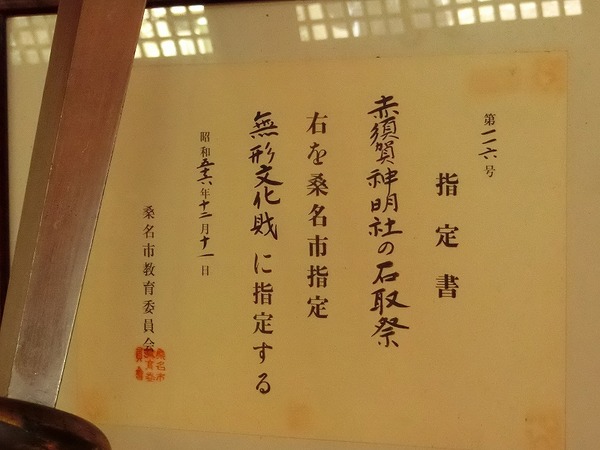 第一一六号
指定書
赤須賀神明社の石取祭
右を桑名市指定
無形文化財に指定する
昭和五十六年十二月十一日
桑名市教育委員会